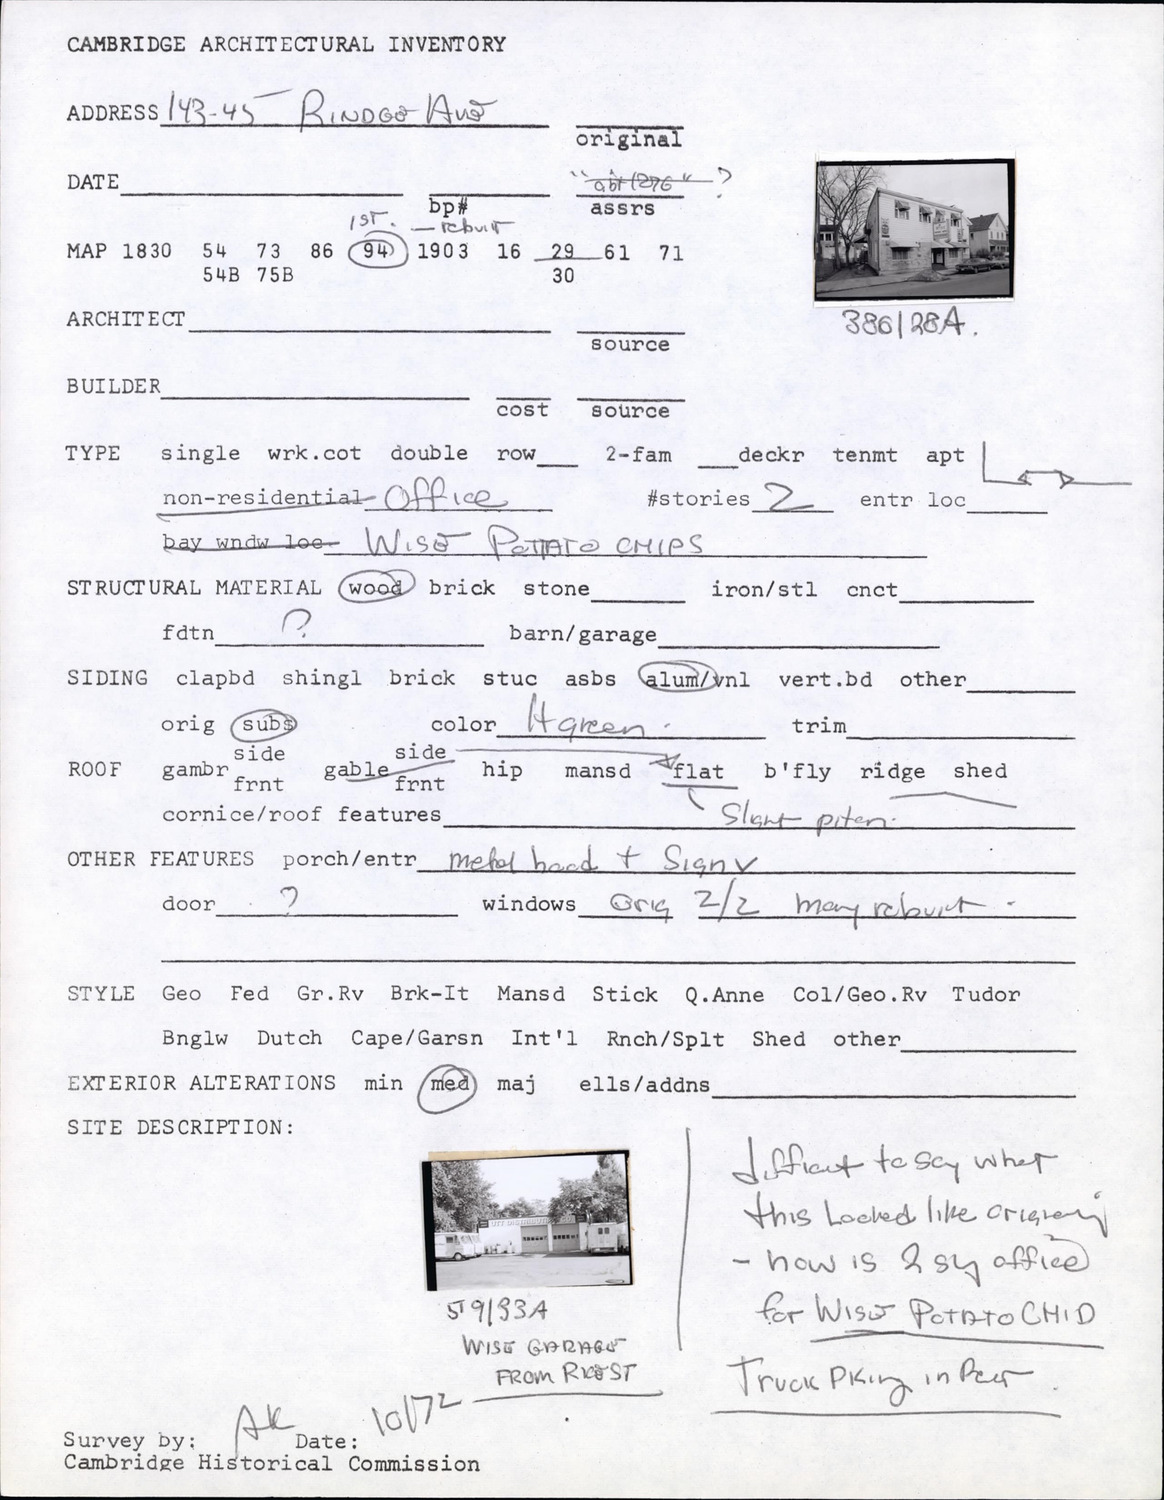 CAMBRIDGE ARCHITECTURAL INVENTORY
ADDRESS 143-45 RINDGE AVE
original
DATE "abt 1876" ?
bp# assrs
1ST. — rebuilt
MAP 1830 54 73 86 94 1903 16 29 61 71
54B 75B 30
386/28A.
ARCHITECT
source
BUILDER
cost source
TYPE single wrk.cot double row 2-fam deckr tenmt apt
non-residential Office #stories 2 entr loc
bay wndw loc WISE POTATO CHIPS
STRUCTURAL MATERIAL wood brick stone iron/stl cnct
fdtn ? barn/garage
SIDING clapbd shingl brick stuc asbs alum/vnl vert.bd other
orig subs color lt green. trim
side side
ROOF gambr gable hip mansd flat b'fly ridge shed
frnt frnt
cornice/roof features Slight pitch.
OTHER FEATURES porch/entr metal hood + Sign
door ? windows Orig 2/2 many rebuilt.
STYLE Geo Fed Gr.Rv Brk-It Mansd Stick Q.Anne Col/Geo.Rv Tudor
Bnglw Dutch Cape/Garsn Int'l Rnch/Splt Shed other
EXTERIOR ALTERATIONS min med maj ells/addns
SITE DESCRIPTION:
difficult to say what
this looked like originally
- now is 2 sty office
for WISE POTATO CHIP
Truck Pking in
59/93A
WISE GARAGE
FROM RICE ST
Survey by: AK Date: 10/72
Cambridge Historical Commission